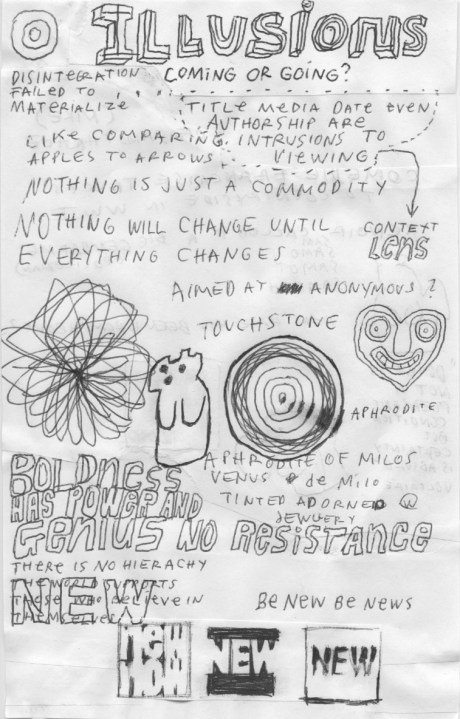 ILLUSIONS
DISINTEGRATION
FAILED TO
MATERIALIZE
COMING OR GOING?
TITLE MEDIA DATE EVEN
AUTHORSHIP ARE
INTRUSIONS TO
VIEWING
LIKE COMPARING
APPLES TO ARROWS
NOTHING IS JUST A COMMODITY
NOTHING WILL CHANGE UNTIL
EVERYTHING CHANGES
CONTEXT
LENS
AIMED AT ANONYMOUS?
TOUCHSTONE
APHRODITE
APHRODITE OF MILOS
VENUS de Milo
TINTED ADORNED @
JEWLERY
BOLDNESS
HAS POWER AND
GENIUS NO RESISTANCE
THERE IS NO HIERACHY
THE WORLD SUPPORTS
THOSE WHO BELIEVE IN
THEMSELVES
NEW
Be New Be News
NEW
NEW